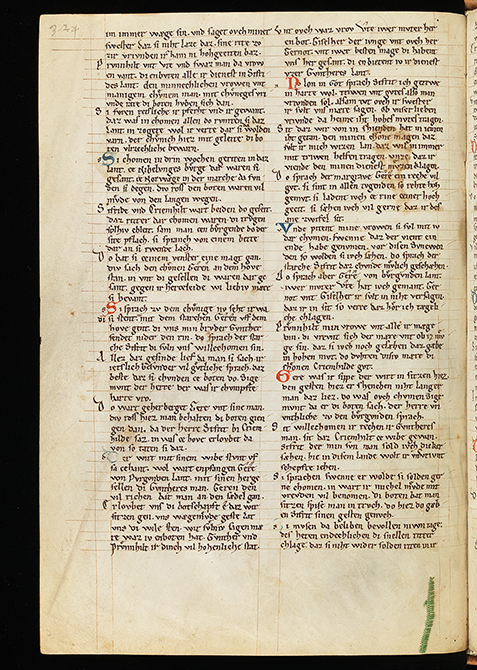 im immer wæge sin. vnd saget ovch miner
swester daz si niht laze daz. sine rite zv
zir vrivnden ir ham ni hohgeciten baz.
Prvnnhilt vnt Vte vnd swaz man da vrow
en vant. di enbvten alle ir dienest in Sifri
des lant. den minnechlichen vrowen vnt
manigem chvnem man. mit chvneges vri
vnde rate di boten hvben sich dan.
Si fvoren reisliche ir pferde vnd ir gewant.
daz was in chomen allen do rvmten si daz
lant. in zogete wol ir verte dar si wolden
varn. der chvnich hiez mit geleite di bo
ten vlizechliche bewarn.
Si chomen in drin wochen geriten in daz
lant. ce Nibelvnges bvrge dar waren si
gesant. ce Norwæge in der marche da fvn
den si degen. div ross den boten waren vil
mvde von den langen wegen.
Sifride vnd Criemhilt wart beiden do geseit.
daz ritter dar chomen waren. di trvgen
solhiv chleit. sam man cen bvrgonden do der
site pflach. si spranch von einem bette
dar an si rwende lach.
Do bat si ceinem venster eine magt gan.
div sach den chvnen Geren an dem hove
stan. in vnt di gesellen di waren dar ge
sant. gegen ir herceleide wi liebiv mære
si bevant.
Si sprach zv dem chvnige nv seht ir wa
si stent. mit dem starchen Geren vf dem
hove gent. di vns min brvder Gvnther
sendet nider den rin. do sprach der star
che Sifrit di svln vns willechomen sin.
Allez daz gesinde lief da man si sach. ir
ieslich besvnder vil gvtliche sprach. daz
beste daz si chvnden ce boten do. Sige
mvnt der herre der was ir chvmfte
harte vro.
Do wart geherberget Gere vnt sine man.
div ross hiez man behalten di boten gien
gen dan. da der herre Sifrit bi Criem
hilde saz. in was ce hove erlovbet da
von so taten si daz.
Der wirt mit sinem wibe stvnt vf
sa cehant. wol wart enpfangen Gere
von Bvrgonden lant. mit sinen herge
sellen di Gvntheres man. Geren den
vil richen bat man an den sedel gan.
Erlovbet vns di botschaft e daz wir
sitzen gen. vns wegemvde geste lat
vns di wile sten. wir svlniv sagen mæ
re waz iv enboten hat Gvnther vnd
Prvnnhilt ir dinch vil hohenlich stat.
Vnt ovch waz vrov Vte iwer mvter her
en bot. Giselher der ivnge vnt ovch her
Gernot. vnt iwer besten mage di habent
vns her gesant. di enbietent iv ir dienest
vzer Gvntheres lant.
Nv lon in got sprach Sifrit ich getrwe
in harte wol. trwen vnt gvtes also man
vrivnden sol. also tvt ovch ir swester
ir svlt vns mære sagen. ob vnser lieben
vrivnde da heime iht hohes mvtes tragen.
Sit daz wir von in schieden hat in iemen
iht getan. den minen chone magen daz
svlt ir mich wizzen lan. daz wil ich in immer
mit triwen helfen tragen. vnze daz ir
viende den minen dienest mvzen chlagen.
Do sprach der margrave Gere ein rechte vil
gvt. si sint in allen tvgenden so rehte hoh
gemvt. si ladent ivch ce Rine ceiner hoch
gecit. si sæhen ivch vil gerne daz ir des
ane zwivel sit.
Vnde bitent mine vrowen si sol mit iv
dar chomen. swenne daz der winter ein
ende habe genomen. vor disen svnewen
den so wolden si ivch sehen. do sprach der
starche Sifrit daz chvnde mvlich geschehen.
Do sprach aber Gere von Bvrgonden lant.
iwer mvter Vte hat ivch gemant. Ger
not vnt Giselher ir svlt in niht versagen.
daz ir in sit so verre daz hör ich tægeli
che chlagen.
Prvnnhilt min vrowe vnt alle ir mæge
din. di vrevnt sich der mære vnt ob iz mv
ge sin. daz si ivch noch gesæhen daz gæbe
in hohen mvt. do dvhten disiv mære di
schonen Criemhilde gvt.
Gere was ir sippe der wirt in sitzen hiez.
den gesten hiez er schenchen niht langer
man daz liez. do was ovch chomen Sige
mvnt da er di boten sach. der herre vri
vntliche zv den Bvrgonden sprach.
Sit willechomen ir rechen ir Gvntheres
man. sit daz Criemhilt ce wibe gewan
Sifrit der min svn man solde ivch dicker
sehen. hie in disem lande wolt ir vrivntl
scheftte iehen.
Si sprachen swenne er wolde si solden ger
ne chomen. in wart ir michel mvde mit
vrevden vil benomen. di boten bat man
sitzen spise man in trvch. do hiez do gebn
en Sifrit sinen gesten genvch.
Si mvsen da beliben bevollen nivn tage.
des heten endechlichen di snellen ritter
chlage. daz si niht wider solden riten in ir